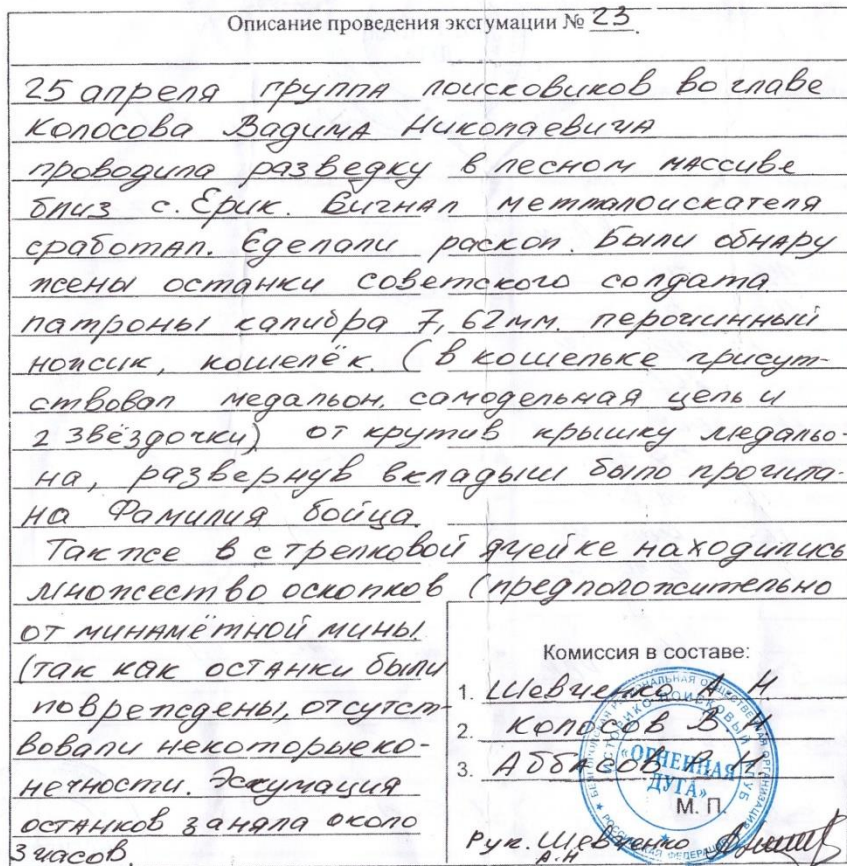 Описание проведения эксгумации № 23.
25 апреля группа поисковиков во главе
Колосова Вадима Николаевича
проводила разведку в лесном массиве
близ с. Ерик. Сигнал метталоискателя
сработал. Сделали раскоп. Были обнару
жены останки советского солдата
патроны калибра 7,62мм. перочинный
ножик, кошелёк. (в кошельке присут-
ствовал медальон. самодельная цепь и
2 звёздочки) от крутив крышку медальо-
на, развернув вкладыш было прочита-
но Фамилия бойца.
Также в стрелковой ячейке находились
множество осколков (предположительно
от минамётной мины.
(так как останки были
повреждены, отсутст-
вовали некоторые ко-
нечности. Эксгумация
останков заняла около
3 часов.
Комиссия в составе:
1. Шевченко А Н
2. Колосов В Н
3. Аббасов
«ОГНЕННАЯ
ДУГА»
М. П.
Рук. Шевченко
А.Н